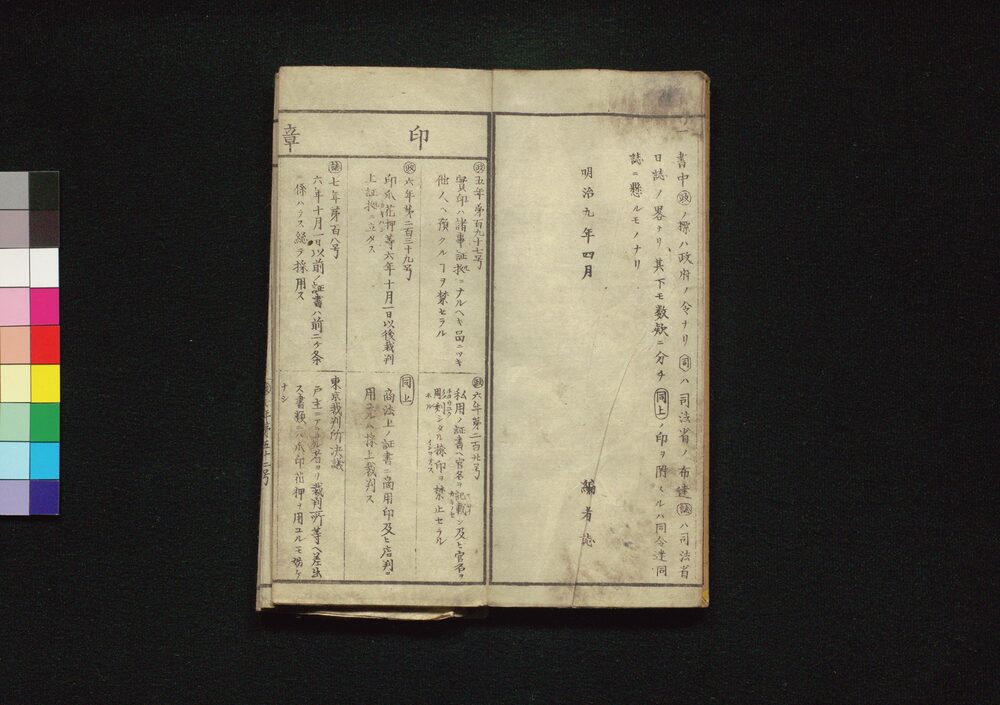 書中政ノ標ハ政府ノ令ナリ司ハ司法省ノ布達誌ハ司法省
日誌ノ畧ナリ、其下モ数欵ニ分チ同上ノ印ヲ附スルハ同令達同
誌ニ懸ルモノナリ
明治九年四月
編者誌
印
章
政五年第百九十七号
實印ハ諸事証拠ニナルヘキ品ニツキ
他人ヘ預クルヿヲ禁セラル
六年第二百廿号
私用ノ証書ヘ官名ヲ記載シ及ヒ官名ヲ
彫刻シタル捺印ヲ禁止セラル
政六年第二百三十九号
印爪花押等六年十月一日以後裁判
上証拠ニ立タス
同上
商法上ノ証書ニ商用印及ヒ店判ヲ
用ユルハ採上裁判ス
誌七年第百八号
六年十月一日以前ノ証書ハ前二ケ条
ニ係ハラス総テ採用ス
東京裁判所决議
戸主ニアラサル者ヨリ裁判所等ヘ差出
ス書類ニハ爪印花押ヲ用ユルモ妨ケ
ナシ